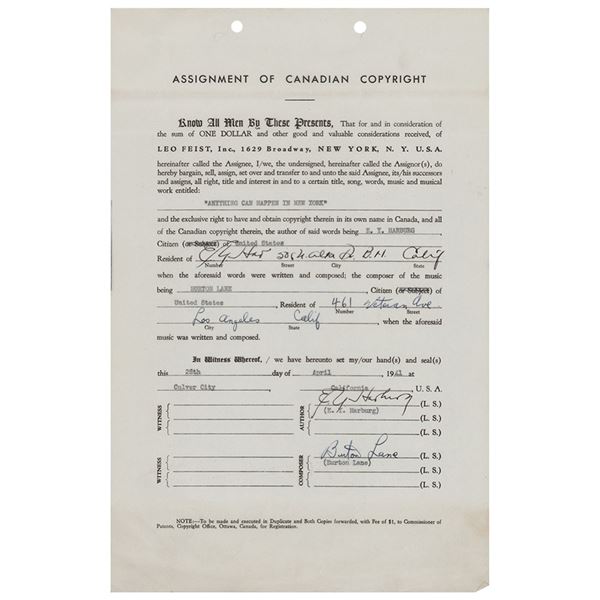 ASSIGNMENT OF CANADIAN COPYRIGHT
Know All Men By These Presents, That for and in consideration of
the sum of ONE DOLLAR and other good and valuable considerations received, of
LEO FEIST, Inc., 1629 Broadway, NEW YORK, N. Y. U.S.A.
hereinafter called the Assignee, I/we, the undersigned, hereinafter called the Assignor(s), do
hereby bargain, sell, assign, set over and transfer to and unto the said Assignee, its/his successors
and assigns, all right, title and interest in and to a certain title, song, words, music and musical
work entitled:
"ANYTHING CAN HAPPEN IN NEW YORK"
and the exclusive right to have and obtain copyright therein in its own name in Canada, and all
of the Canadian copyright therein, the author of said words being E. Y. HARBURG
Citizen (or Subject) of United States
Resident of B.H. Calif
Number Street City State
when the aforesaid words were written and composed; the composer of the music
being BURTON LANE, Citizen (or Subject) of
United States, Resident of 461 Veteran Ave
Number Street
Los Angeles Calif, when the aforesaid
City State
music was written and composed.
In Witness Whereof, I/we have hereunto set my/our hand(s) and seal(s)
this 28th day of April, 1941 at
Culver City California, U. S. A.
WITNESS AUTHOR E Y Harburg (L. S.)
(E. Y. Harburg) (L. S.)
(L. S.)
WITNESS COMPOSER Burton Lane (L. S.)
(Burton Lane) (L. S.)
(L. S.)
NOTE:—To be made and executed in Duplicate and Both Copies forwarded, with Fee of $1, to Commissioner of
Patents, Copyright Office, Ottawa, Canada, for Registration.